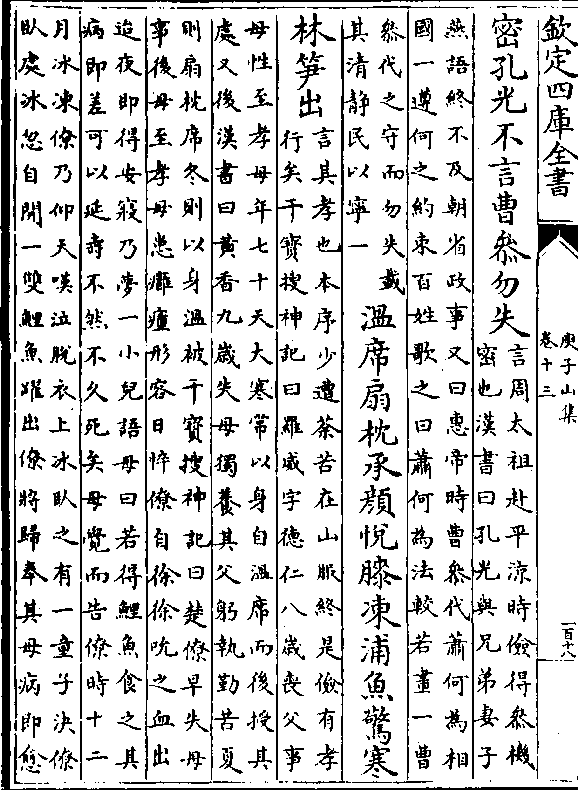 欽定四庫全書
庾子山集
卷十三
一百十八
密孔光不言曹叅勿失
言周太祖赴平涼時儉得叅機
密也漢書曰孔光與兄弟妻子
燕語終不及朝省政事又曰惠帝時曹叅代蕭何為相
國一遵何之約束百姓歌之曰蕭何為法較若畫一曹
叅代之守而勿失載
其清静民以寧一
溫席扇枕承顔悅膝凍浦魚驚寒
林笋出
言其孝也本序少遭荼苦在山服終是儉有孝
行矣干寶搜神記曰羅威字德仁八歲喪父事
母性至孝母年七十天大寒常以身自溫席而後授其
處又後漢書曰黄香九歲失母獨養其父躬執勤苦夏
則扇枕席冬則以身溫被干寶搜神記曰楚僚早失母
事後母至孝母患癰疽形容日悴僚自徐徐吮之血出
迨夜即得安寢乃夢一小兒語母曰若得鯉魚食之其
病即差可以延壽不然不久死矣母覺而告僚時十二
月冰凍僚乃仰天嘆泣脫衣上冰卧之有一童子決僚
卧處冰忽自開一雙鯉魚躍出僚將歸奉其母病即愈